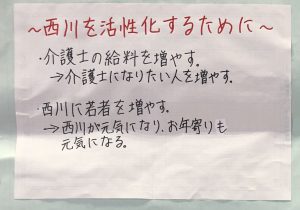 ～西川を活性化するために～
・介護士の給料を増やす。
→介護士になりたい人を増やす。
・西川に若者を増やす。
→西川が元気になり、お年寄りも
元気になる。